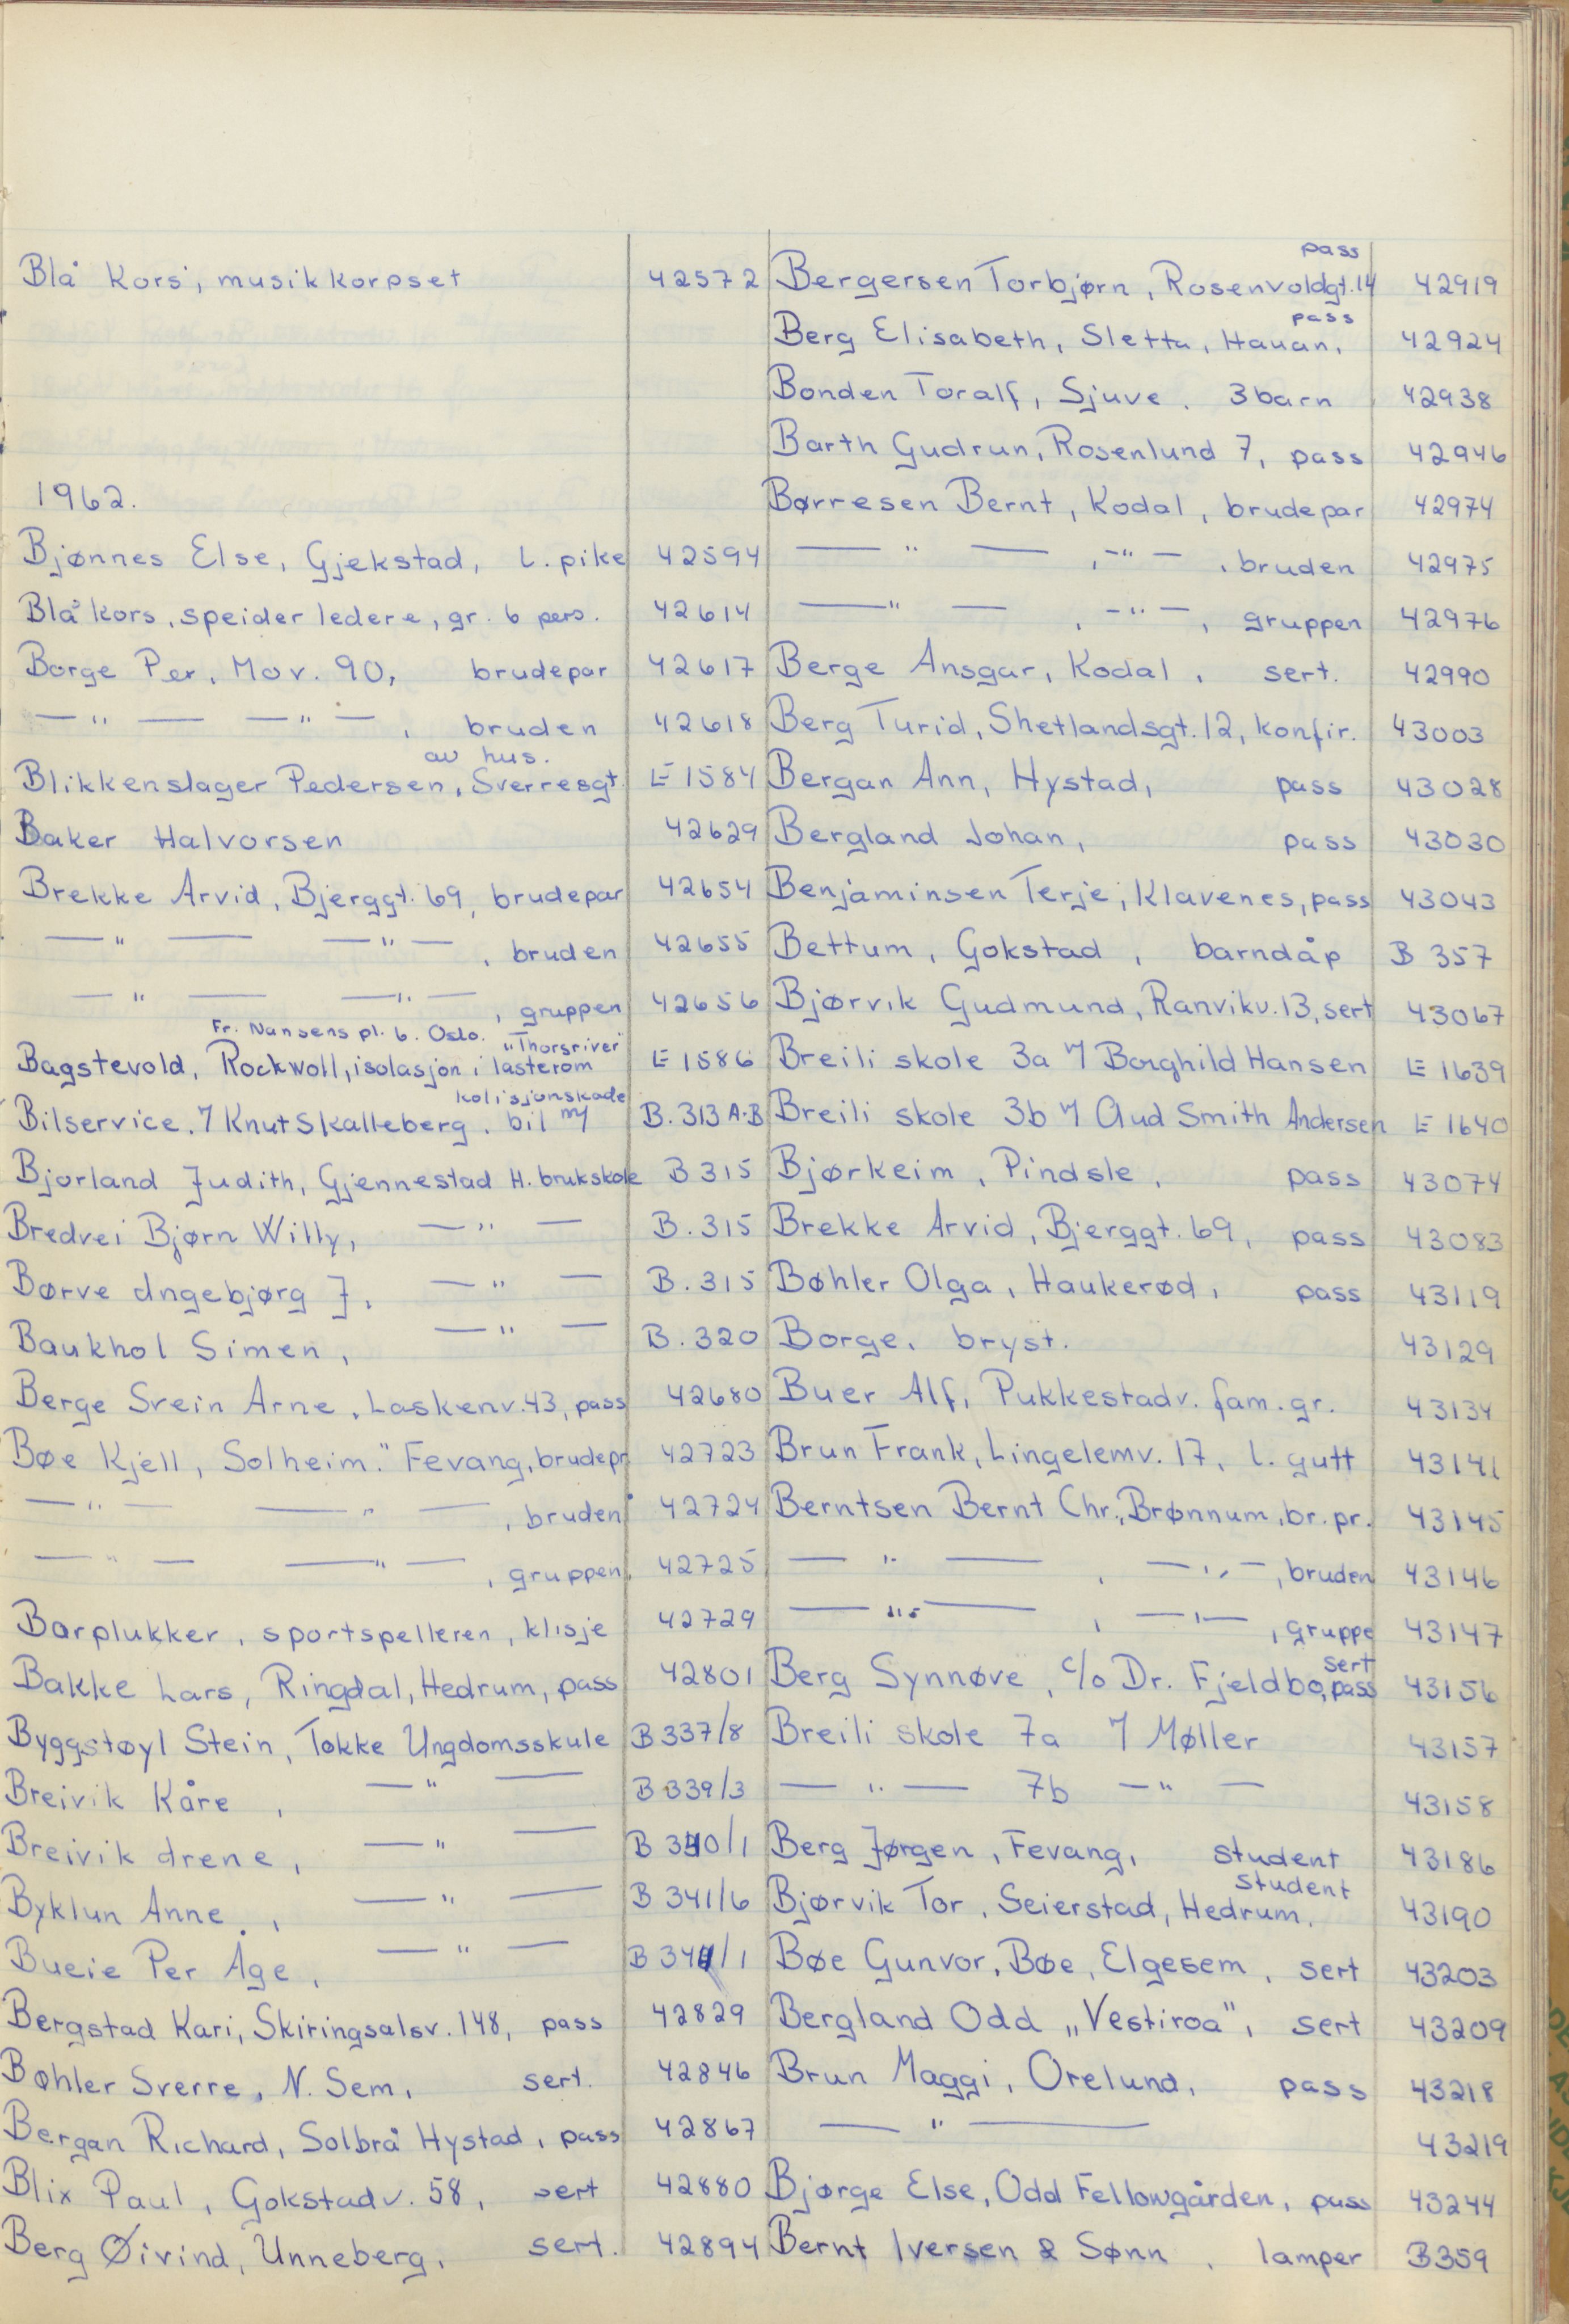 Blå Kors, musikkorpset 42572
1962.
Bjønnes Else, Gjekstad, l. pike 42594
Blå kors, speider ledere, gr. 6 pers. 42614
Borge Per, Mov. 90, brudepar 42617
— " — — " — , bruden 42618
av hus.
Blikkenslager Pedersen, Sverresgt. E 1584
Baker Halvorsen 42629
Brekke Arvid, Bjerggt. 69, brudepar 42654
— " — — " — , bruden 42655
— " — — " — , gruppen 42656
Fr. Nansens pl. 6. Oslo. "Thorsriver
Bagstevold, Rockwoll, isolasjon i lasterom E 1586
kolisjonskade
Bilservice. 7 Knut Skalleberg. bil m/ B. 313 A-B
Bjorland Judith, Gjennestad H. brukskole B 315
Bredvei Bjørn Willy, — " — B. 315
Børve Ingebjørg J. — " — B. 315
Baukhol Simen, — " — B. 320
Berge Svein Arne, Laskenv. 43, pass 42680
Bøe Kjell, Solheim." Fevang, brudepr. 42723
— " — — " — , bruden 42724
— " — — " — , gruppen 42725
Barplukker, sportspelleren, klisje 42729
Bakke Lars, Ringdal, Hedrum, pass 42801
Byggstøyl Stein, Tokke Ungdomsskule B 337/8
Breivik Kåre, — " — B 339/3
Breivik Irene, — " — B 340/1
Byklun Anne, — " — B 341/6
Bueie Per Åge, — " — /1
Bergstad Kari, Skiringsalsv. 148, pass 42829
Bøhler Sverre, N. Sem, sert. 42846
Bergan Richard, Solbrå Hystad, pass 42867
Blix Paul, Gokstadv. 58, sert 42880
Berg Øivind, Unneberg, sert. 42894
pass
Bergersen Torbjørn, Rosenvoldgt. 14 42919
pass
Berg Elisabeth, Sletta, Hauan, 42924
Bonden Toralf, Sjuve. 3 barn 42938
Barth Gudrun, Rosenlund 7, pass 42946
Børresen Bernt, Kodal, brudepar 42974
— " — , — " — , bruden 42975
— " — , — " — , gruppen 42976
Berge Ansgar, Kodal, sert. 42990
Berg Turid, Shetlandsgt. 12, konfir. 43003
Bergan Ann, Hystad, pass 43028
Bergland Johan, pass 43030
Benjaminsen Terje, Klavenes, pass 43043
Bettum, Gokstad, barndåp B 357
Bjørvik Gudmund, Ranvikv. 13, sert 43067
Breili skole 3a 7 Borghild Hansen E 1639
Breili skole 3b 7 Aud Smith Andersen E 1640
Bjørkeim, Pindsle, pass 43074
Brekke Arvid, Bjerggt. 69, pass 43083
Bøhler Olga, Haukerød, pass 43119
Borge, bryst. 43129
Buer Alf, Pukkestadv. fam. gr. 43134
Brun Frank, Lingelemv. 17, l. gutt 43141
Berntsen Bernt Chr., Brønnum, br. pr. 43145
— " — , — " — , bruden 43146
— " — , — " — , gruppe 43147
sert
Berg Synnøve, c/o Dr. Fjeldbo, pass 43156
Breili skole 7a 7 Møller 43157
— " — 7b — " — 43158
Berg Jørgen, Fevang, student 43186
student
Bjørvik Tor, Seierstad, Hedrum, 43190
Bøe Gunvor, Bøe, Elgesem, sert 43203
Bergland Odd „Vestiroa", sert 43209
Brun Maggi, Orelund, pass 43218
— " — 43219
Bjørge Else, Odd Fellowgården, pass 43244
Bernt Iversen & Sønn, lamper B 359